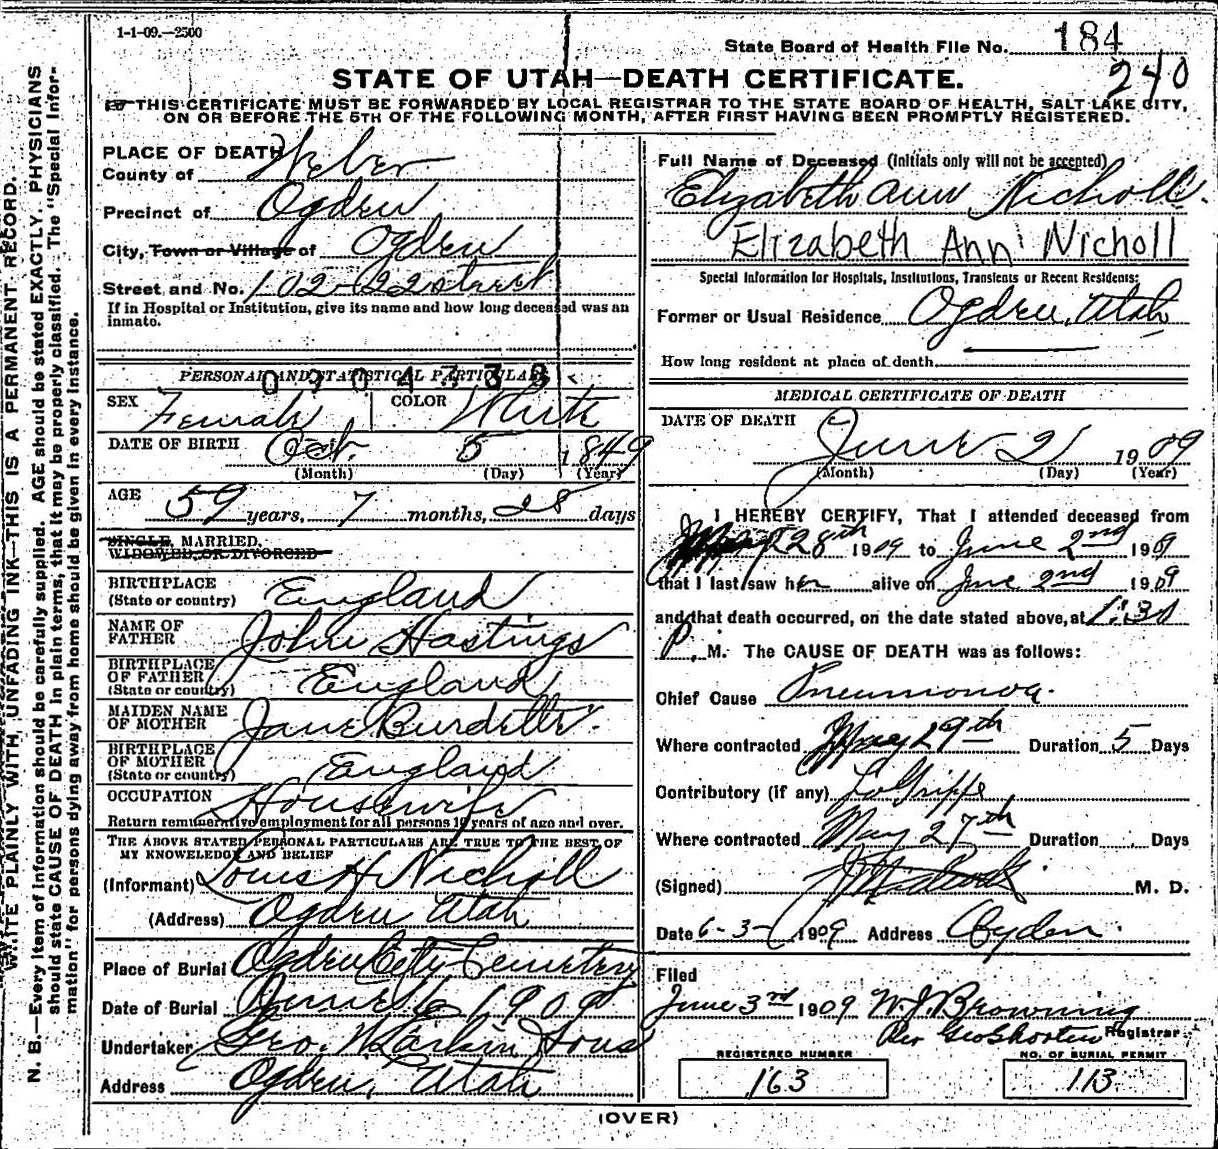 1-1-09.—2500
State Board of Health File No. 184
240
STATE OF UTAH—DEATH CERTIFICATE.
THIS CERTIFICATE MUST BE FORWARDED BY LOCAL REGISTRAR TO THE STATE BOARD OF HEALTH, SALT LAKE CITY,
ON OR BEFORE THE 5TH OF THE FOLLOWING MONTH, AFTER FIRST HAVING BEEN PROMPTLY REGISTERED.
WRITE PLAINLY WITH UNFADING INK—THIS IS A PERMANENT RECORD.
N. B.—Every item of information should be carefully supplied. AGE should be stated EXACTLY. PHYSICIANS
should state CAUSE OF DEATH in plain terms, that it may be properly classified. The "Special Infor-
mation" for persons dying away from home should be given in every instance.
PLACE OF DEATH
County of Weber
Precinct of Ogden
City, Town or Village of Ogden
Street and No. 102-22 street
If in Hospital or Institution, give its name and how long deceased was an
inmate.
PERSONAL AND STATISTICAL PARTICULARS
SEX Female COLOR White
DATE OF BIRTH Oct. 5 1849
(Month) (Day) (Year)
AGE 59 years, 7 months, 28 days
SINGLE, MARRIED,
WIDOWED, OR DIVORCED
BIRTHPLACE
(State or country) England
NAME OF
FATHER John Hastings
BIRTHPLACE
OF FATHER
(State or country) England
MAIDEN NAME
OF MOTHER Jane Burdette
BIRTHPLACE
OF MOTHER
(State or country) England
OCCUPATION Housewife
Return remunerative employment for all persons 10 years of age and over.
THE ABOVE STATED PERSONAL PARTICULARS ARE TRUE TO THE BEST OF
MY KNOWLEDGE AND BELIEF
(Informant) Louis H Nicholl
(Address) Ogden Utah
Place of Burial Ogden City Cemetery
Date of Burial June 6 1909
Undertaker Geo. W. Larkin Sons
Address Ogden, Utah
Full Name of Deceased (Initials only will not be accepted)
Elizabeth Ann Nicholl.
Elizabeth Ann Nicholl
Special Information for Hospitals, Institutions, Transients or Recent Residents:
Former or Usual Residence Ogden, Utah
How long resident at place of death
MEDICAL CERTIFICATE OF DEATH
DATE OF DEATH
June 2 1909
(Month) (Day) (Year)
I HEREBY CERTIFY, That I attended deceased from
May 28th 1909 to June 2nd 1909
that I last saw her alive on June 2nd 1909
and that death occurred, on the date stated above, at 1:30
P. M. The CAUSE OF DEATH was as follows:
Chief Cause Pneumonia
Where contracted May 29th Duration 5 Days
Contributory (if any) La Grippe
Where contracted May 27th Duration Days
(Signed) M. D.
Date 6-3- 1909 Address Ogden
Filed
June 3rd 1909 W.J. Browning
Per Geo Shorten Registrar
REGISTERED NUMBER
163
NO. OF BURIAL PERMIT
113
(OVER)